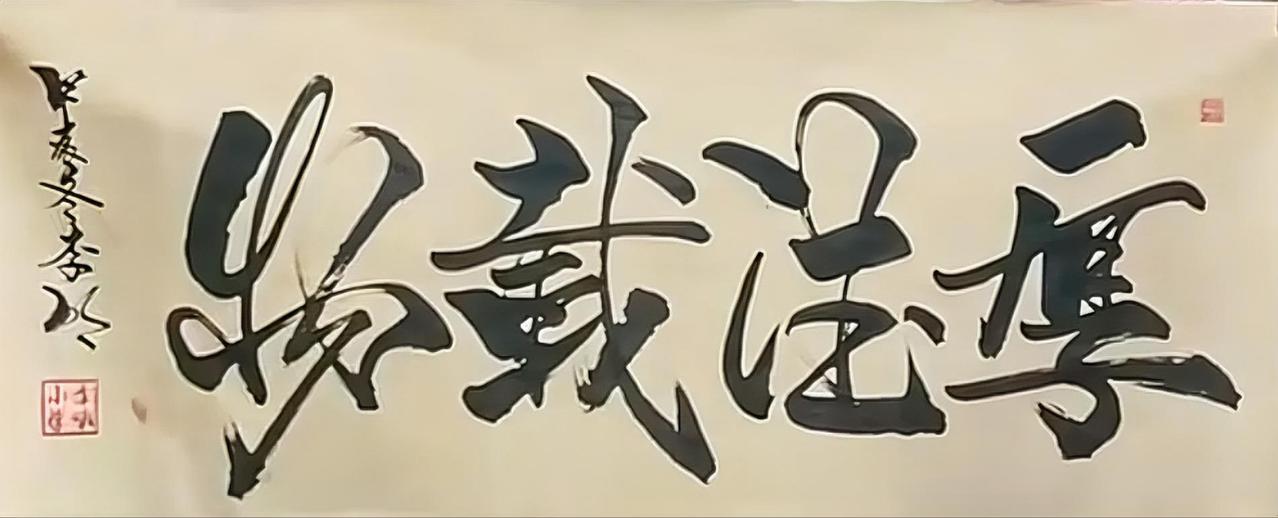 厚德載物
甲辰冬李